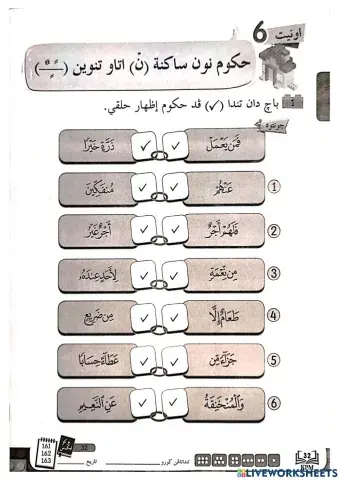 اونيت 6
حكوم نون ساكنة (نْ) اتاو تنوين (ـًـٍـٌ)
1 باچ دان تندا (✓) ڤد حكوم إظهار حلقي.
چونتوه
فَمَن يَعْمَلْ ✓ ✓ ذَرَّةٍ خَيْرًا
1 عَنْهُمْ ✓ ✓ مُنفَكِّينَ
2 فَلَهُمْ أَجْرٌ ✓ ✓ أَجْرٌ غَيْرُ
3 مِن نِّعْمَةٍ ✓ ✓ لِأَحَدٍ عِندَهُ
4 طَعَامٌ إِلَّا ✓ ✓ مِن ضَرِيعٍ
5 جَزَاءً مِّن ✓ ✓ عَطَاءً حِسَابًا
6 وَالْمُنْخَنِقَةُ ✓ ✓ عَنِ النَّعِيمِ
161
162
163
32
تنداتاڠن ڬورو ________ تاريخ ________
32
KPM
LIVEWORKSHEETS